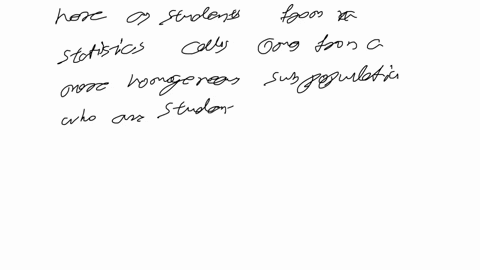 here as students from a
statistics class come from a
more homogeneous subpopulatio
who are studen